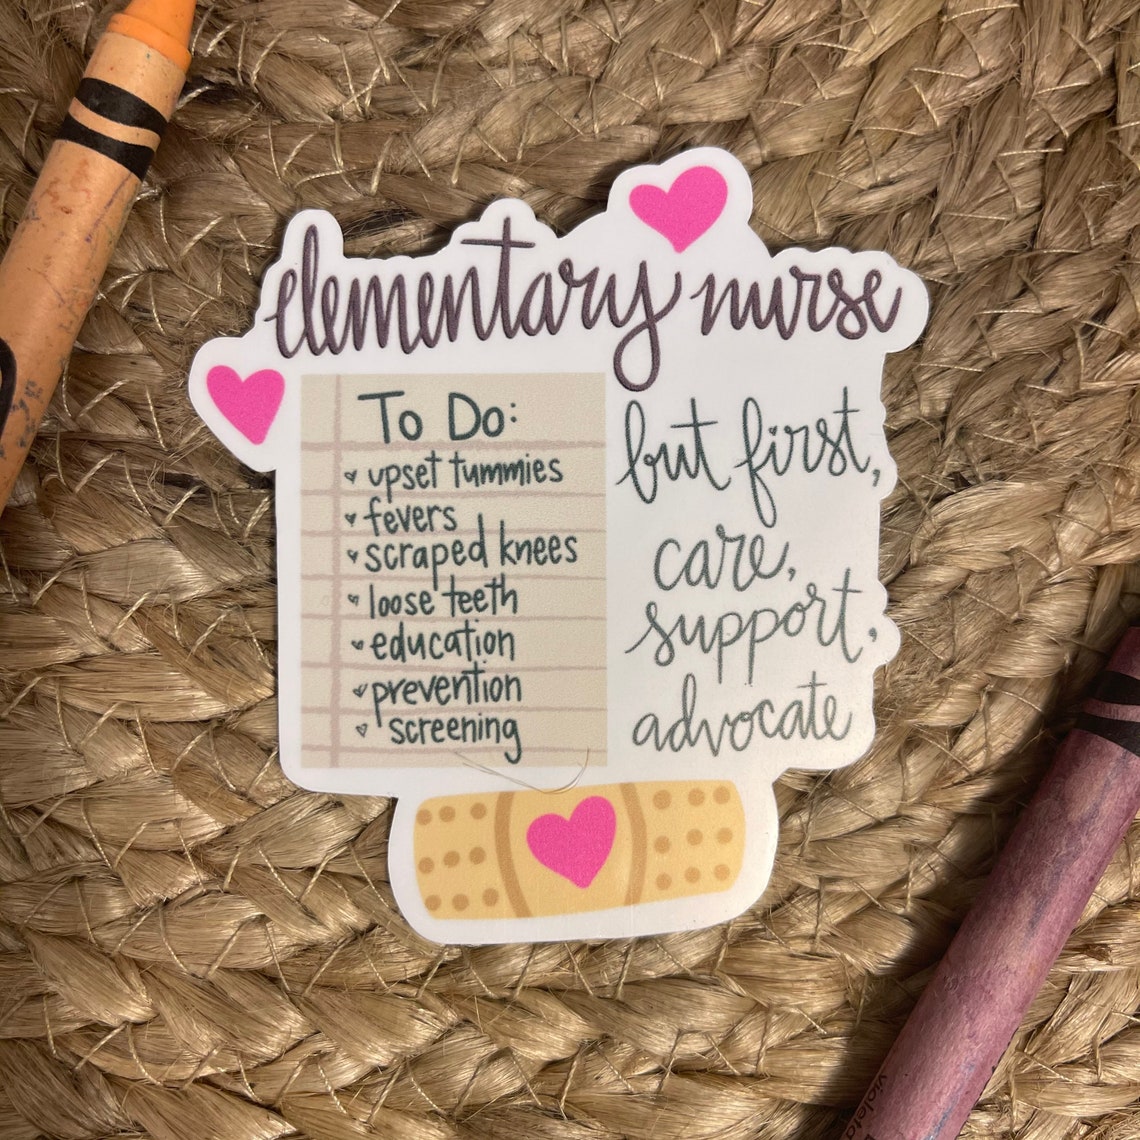 elementary nurse
To Do:
upset tummies
fevers
scraped knees
loose teeth
education
prevention
screening
but first,
care,
support,
advocate
violeta